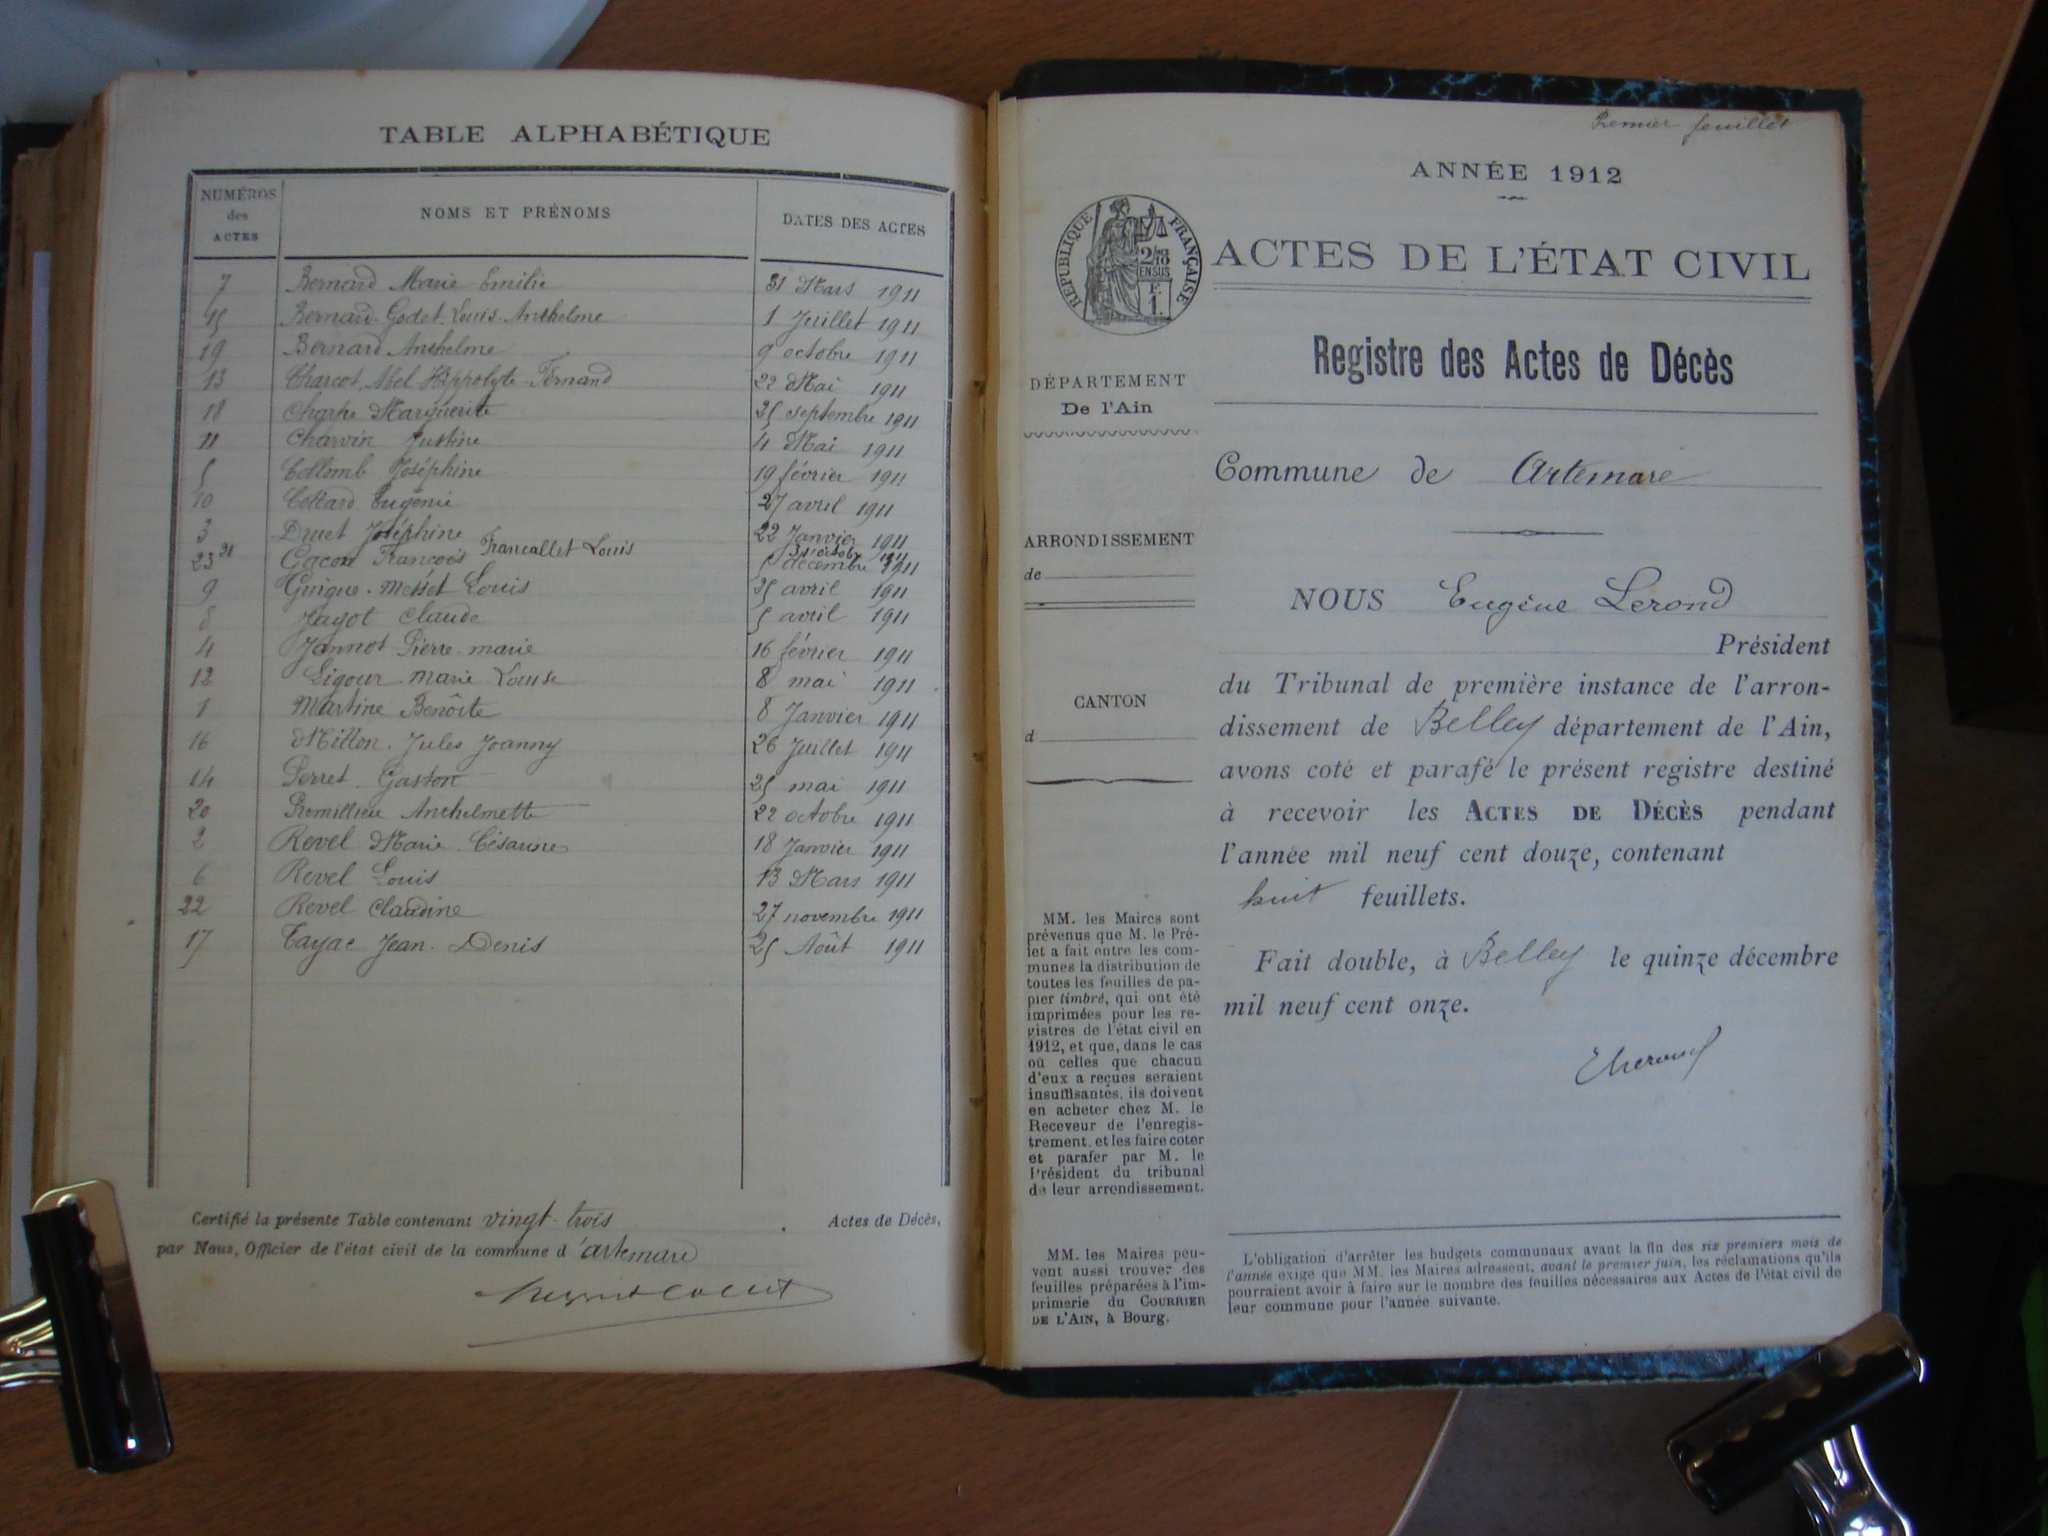 TABLE ALPHABÉTIQUE
NUMÉROS des ACTES NOMS ET PRÉNOMS DATES DES ACTES
7 Bernard Marie Emilie 31 Mars 1911
15 Bernard-Godet Louis-Anthelme 1 Juillet 1911
19 Bernard Anthelme 9 octobre 1911
13 Charcot, Abel Hippolyte Fernand 22 Mai 1911
18 Marguerite 25 septembre 1911
11 Charvin Justine 4 Mai 1911
5 Collomb Joséphine 19 février 1911
10 Cottard Eugénie 27 avril 1911
3 Druet Joséphine 22 Janvier 1911
21 Francallet Louis 31 octobre 1911
23 Gacon François 5 décembre 1911
9 Guigue-Messet Louis 25 avril 1911
8 Jagot Claude 5 avril 1911
4 Jannot Pierre marie 16 février 1911
12 Ligour Marie Louise 8 mai 1911
1 Martine Benôite 8 Janvier 1911
16 Millon Jules Joanny 26 Juillet 1911
14 Perret Gaston 25 mai 1911
20 Premillieu Anthelmette 22 octobre 1911
2 Revel Marie Césarine 18 Janvier 1911
6 Revel Louis 13 Mars 1911
22 Revel Claudine 27 novembre 1911
17 Tayac Jean-Denis 25 Août 1911
Certifié la présente Table contenant vingt-trois Actes de Décès,
par Nous, Officier de l'état civil de la commune d'artemare
Premier feuillet
ANNÉE 1912
RÉPUBLIQUE FRANÇAISE
2/10 EN SUS
F. 1.
ACTES DE L'ÉTAT CIVIL
Registre des Actes de Décès
DÉPARTEMENT
De l'Ain
Commune de Artemare
ARRONDISSEMENT
de
NOUS Eugène Lerond
Président
du Tribunal de première instance de l'arron-
dissement de Belley département de l'Ain,
avons coté et parafé le présent registre destiné
à recevoir les ACTES DE DÉCÈS pendant
l'année mil neuf cent douze, contenant
huit feuillets.
Fait double, à Belley le quinze décembre
mil neuf cent onze.
CANTON
d
MM. les Maires sont
prévenus que M. le Pré-
fet a fait entre les com-
munes la distribution de
toutes les feuilles de pa-
pier timbré, qui ont été
imprimées pour les re-
gistres de l'état civil en
1912, et que, dans le cas
où celles que chacun
d'eux a reçues seraient
insuffisantes, ils doivent
en acheter chez M. le
Receveur de l'enregis-
trement, et les faire coter
et parafer par M. le
Président du tribunal
de leur arrondissement.
MM. les Maires peu-
vent aussi trouver des
feuilles préparées à l'im-
primerie du COURRIER
DE L'AIN, à Bourg.
L'obligation d'arrêter les budgets communaux avant la fin des six premiers mois de
l'année exige que MM. les Maires adressent, avant le premier juin, les réclamations qu'ils
pourraient avoir à faire sur le nombre des feuilles nécessaires aux Actes de l'état civil de
leur commune pour l'année suivante.